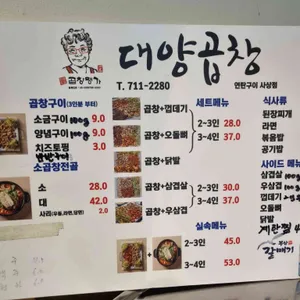 곱창명가
대양곱창
T. 711-2280
연탄구이 사상점
곱창구이(3인분 부터)
소금구이 100g 9.0
양념구이 100g 9.0
치즈토핑 3.0
소곱창전골
소 28.0
대 42.0
사리(우동,라면,당면) 2.0
세트메뉴
곱창+껍데기
곱창+오돌뼈
2~3인 28.0
3~4인 37.0
곱창+닭발
곱창+삼겹살
곱창+우삼겹
2~3인 30.0
3~4인 37.0
실속메뉴
2~3인 45.0
3~4인 53.0
식사류
된장찌개
라면
볶음밥
공기밥
사이드 메뉴
삼겹살 100g
우삼겹 100g
껍데기
오돌뼈
닭발
계란찜 4
부산갈매기